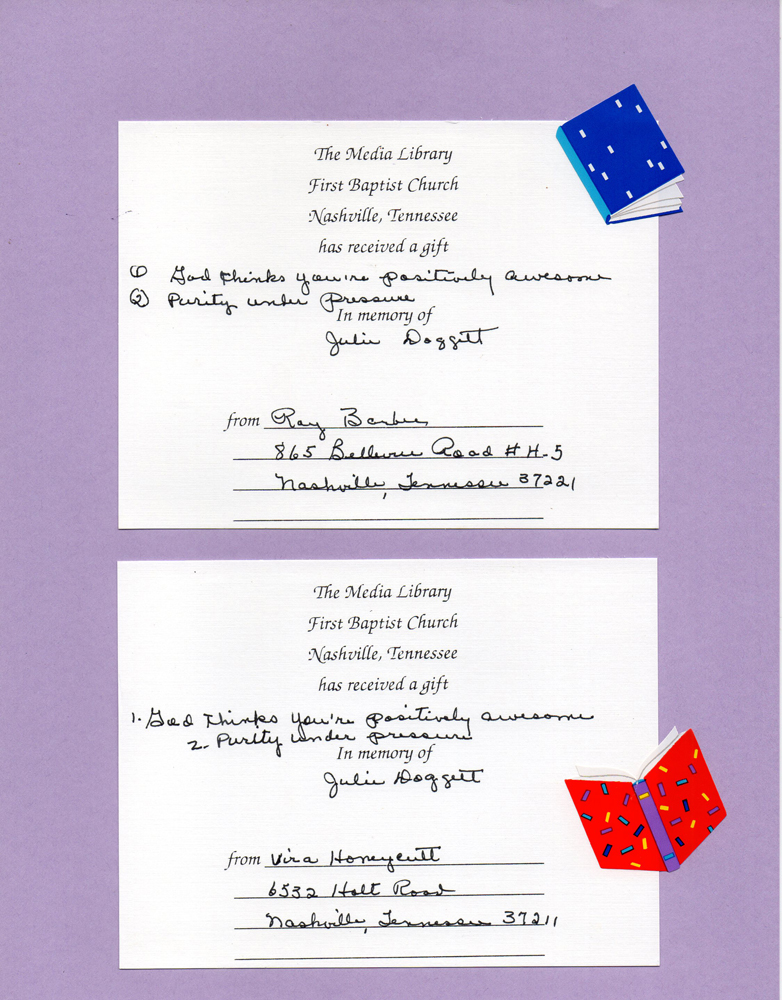 The Media Library
First Baptist Church
Nashville, Tennessee
has received a gift
① God thinks you're positively awesome
② Purity under pressure
In memory of
Julie Doggett
from Ray Barbee
865 Bellevue Road # H-5
Nashville, Tennessee 37221
The Media Library
First Baptist Church
Nashville, Tennessee
has received a gift
1. God Thinks You're positively awesome
2. Purity under pressure
In memory of
Julie Doggett
from Vira Honeycutt
6532 Holt Road
Nashville, Tennessee 37211